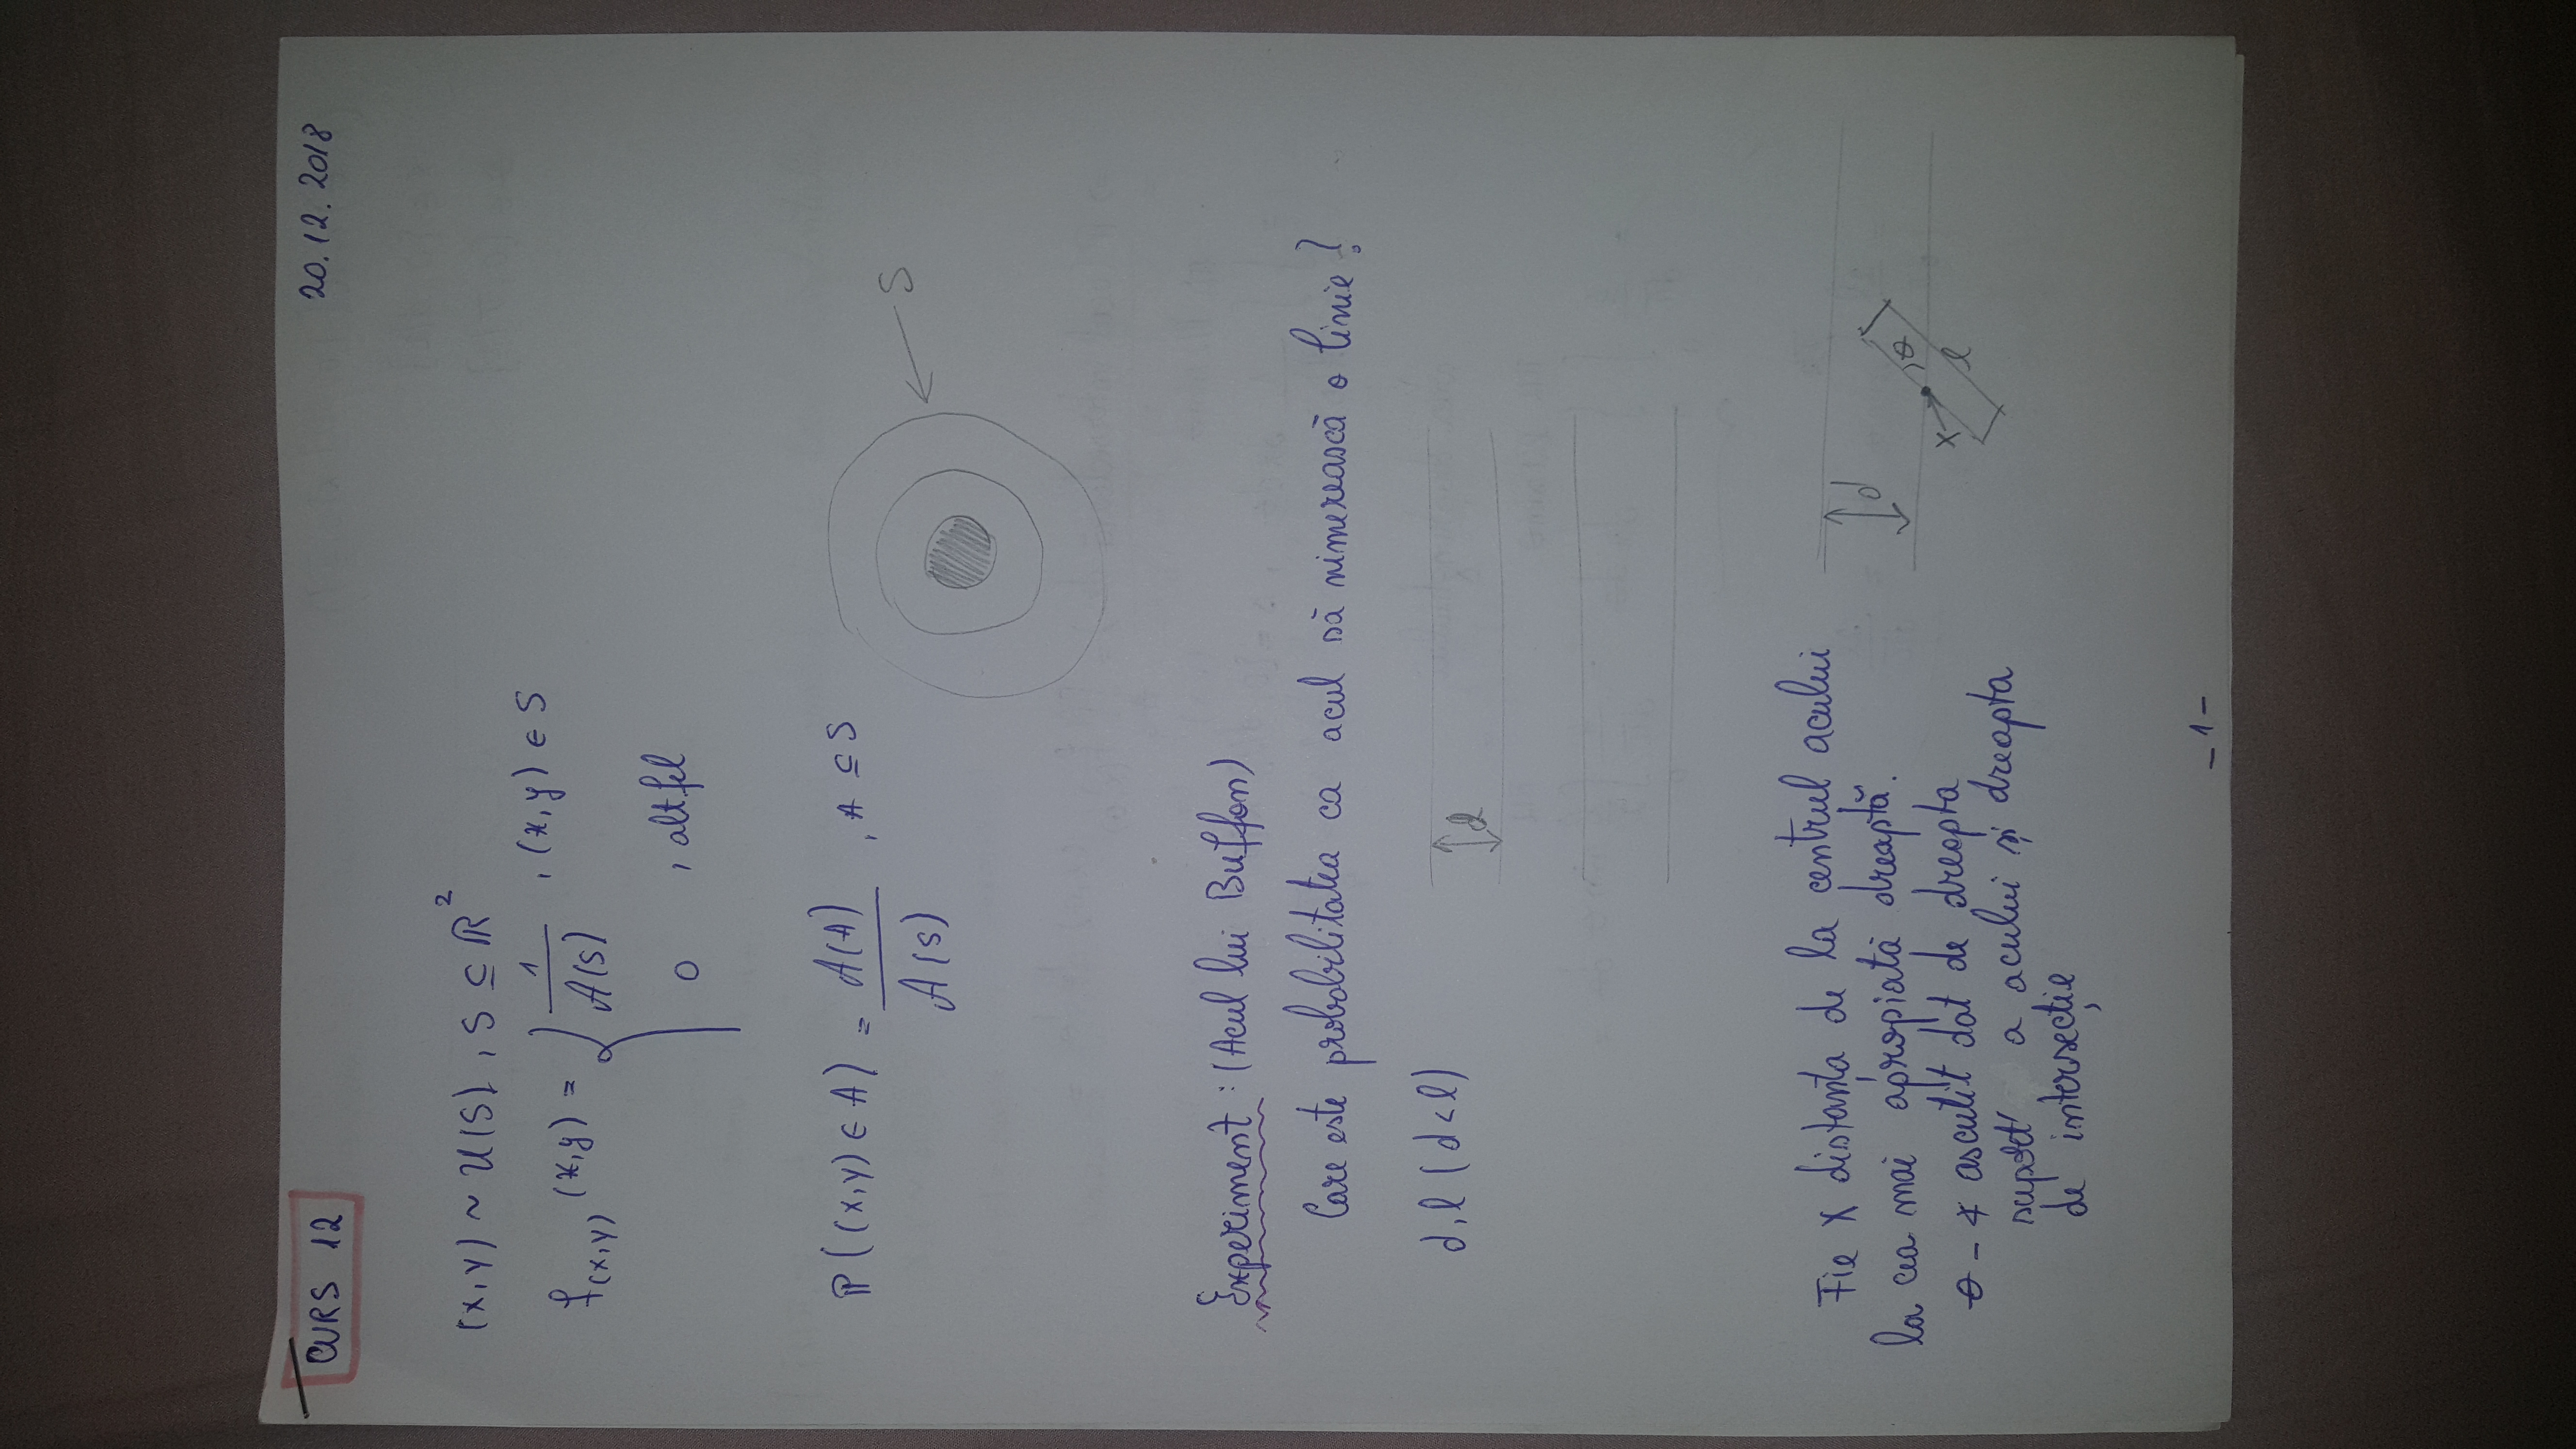 CURS 12
20.12.2018
(X,Y) ~ U(S), S ⊆ ℝ²
f(X,Y) (x,y) = { 1/A(S) , (x,y) ∈ S
0 , altfel
ℙ((X,Y) ∈ A) = A(A)/A(S) , A ⊆ S
S
Experiment: (Acul lui Buffon)
Care este probabilitatea ca acul să nimerească o linie?
d, l (d<l)
d
Fie X distanța de la centrul acului
la cea mai apropiată dreaptă.
θ - ∢ ascuțit dat de dreapta
suport a acului și dreapta
de intersecție
d
θ
X
l
- 1 -